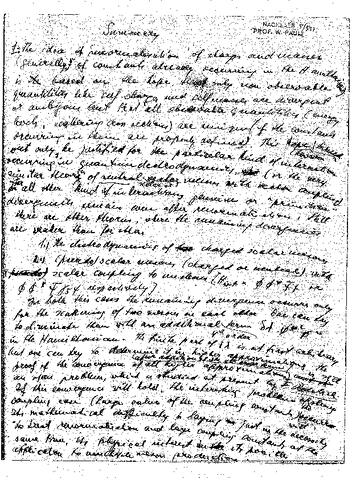 Summary
NACHLASS
PROF. W. PAULI
The idea of renormalisation of charge and masses
(generally of constants already occurring in the H
is based on the hope that only non observable
quantities like self charge and self masses are divergent
or ambiguous but that all observable quantities (energy
levels, scattering cross sections) are unique (if the constants
occurring in them are properly defined). This hope
out only be justified for the particular kind of interaction
occurring in quantum electrodynamics, (or the very
similar theory of neutral vector mesons with vector coupling)
In all other kind of interactions or primitive
divergencies remain even after renormalisation. Still
there are other theories, where the remaining divergencies
are weaker than for other
1.) the electrodynamics of charged scalar mesons
2.) (pseudo) scalar mesons (charged or neutral) with
scalar coupling to nucleons
respectively)
For both this cases the remaining divergence occurs only
for the scattering of two mesons on each other. One can try
to eliminate them with an additional term
in the Hamiltonian. The finite part of is at first arbitrary
but one can try to determine it in higher approximations. The
proof of the convergence of all higher approximations
an open problem, which is studied at present by
if this convergence will hold. The interesting problem of strong
coupling case (large value of the coupling constant)
Its mathematical difficulty is laying in just in the necessity
to treat renormalisation and large coupling constants at the
same time, its physical interest in its possible
application to multiple meson production